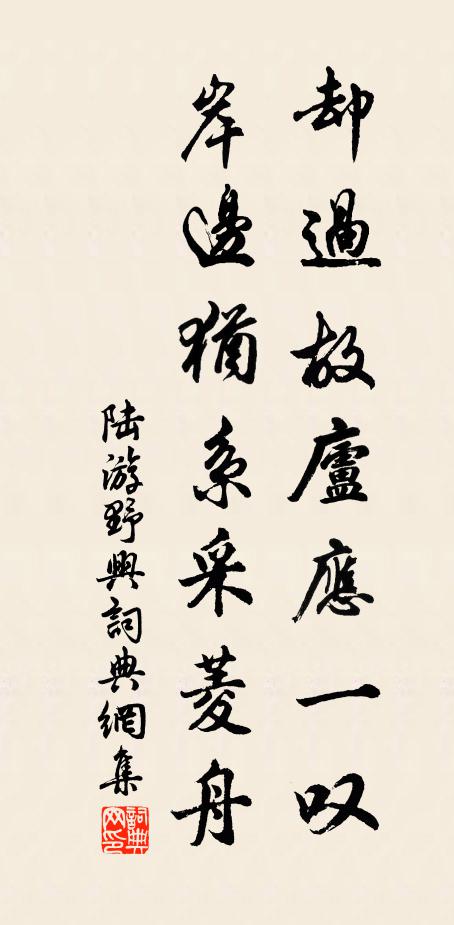 却過故廬應一叹
岸邊猶系采菱舟
陸游野興詞典網集
詞典網印